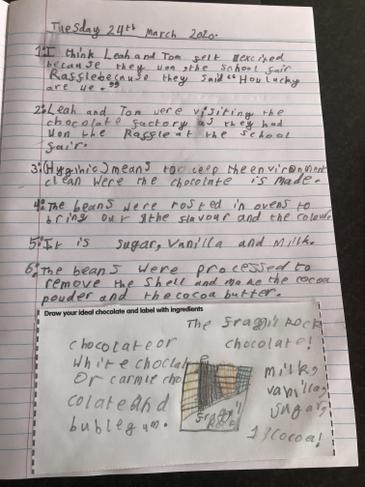 Tuesday 24th March 2020.
1: I think Leah and Tom felt exicned
because they won the school fair
Raffle because they said "How lucky
are we."
2: Leah and Tom were visiting the
chocolate factory as they had
won the Raffle at the school
fair.
3: (Hyginic) means to keep the environment
clean were the chocolate is made.
4: The beans were rosted in ovens to
bring out the flavour and the colour.
5: It is sugar, Vanilla and Milk.
6: The beans were processed to
remove the shell and make the cocoa
powder and the cocoa butter.
Draw your ideal chocolate and label with ingredients
The fraggil Rock
chocolate or chocolate!
White choclate
Or carmle cho
colate And
bubblegum.
milk,
vanilla,
sugar,
cocoa!
fraggil
Rock